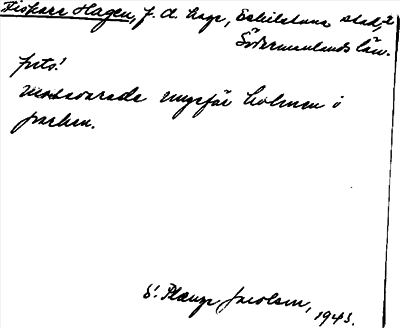 Fiskare Hagen, f. d. läge, Eskilstuna stad,2
Södermanlands län.
Jnts!
motsvarade ungefär holmen i
parken.
S. Plange Jacobson, 1943.